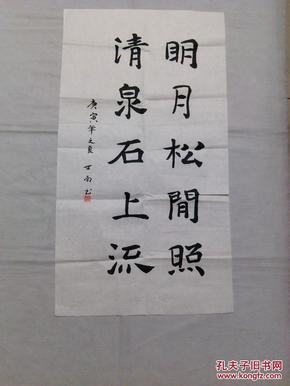 明月松間照
清泉石上流
庚寅年之夏
世南书
孔夫子旧书网